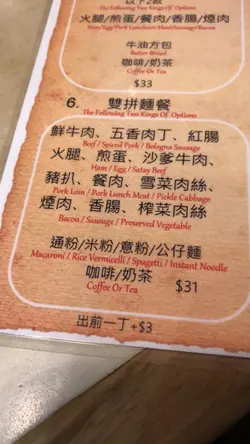 以下2款
The Following Two Kings Of Options
火腿/煎蛋/餐肉/香腸/煙肉
Ham/Egg/Pork Luncheon Meat/Sausage/Bacon
牛油方包
Butter Bread
咖啡/奶茶
Coffee Or Tea
$33
6. 雙拼麵餐
The Following Two Kings Of Options
鮮牛肉、五香肉丁、紅腸
Beef / Spiced Pork / Bologna Sausage
火腿、煎蛋、沙爹牛肉、
Ham / Egg / Satay Beef
豬扒、餐肉、雪菜肉絲、
Pork Loin / Pork Lunch Meat / Pickle Cabbage
煙肉、香腸、榨菜肉絲
Bacon / Sausage / Preserved Vegetable
通粉/米粉/意粉/公仔麵
Macaroni / Rice Vermicelli / Spagetti / Instant Noodle
咖啡/奶茶 $31
Coffee Or Tea
出前一丁+$3